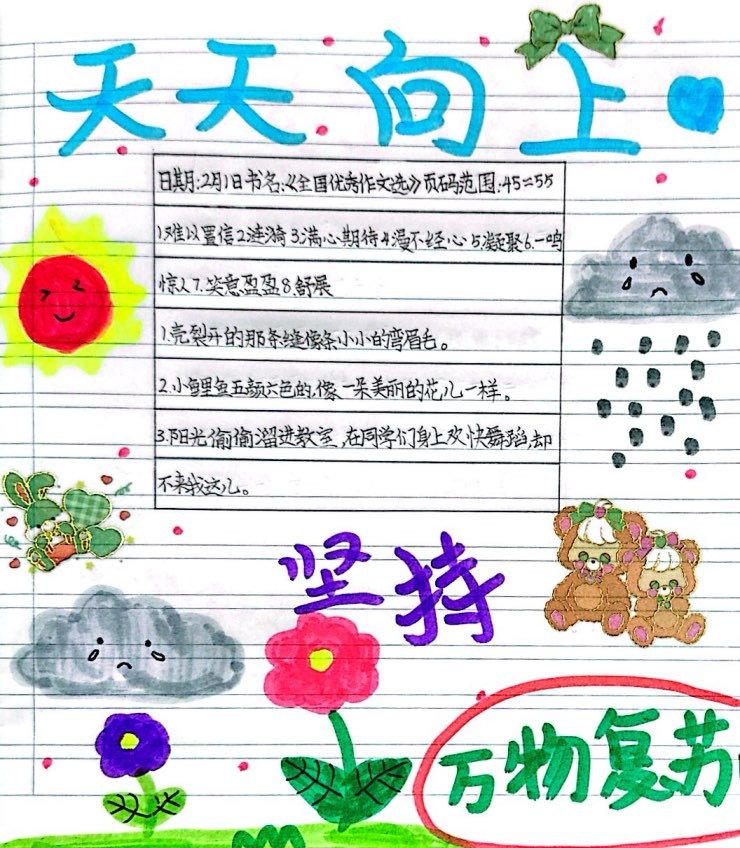 天天向上
日期:2月1日书名:《全国优秀作文选》页码范围:45=55
1.难以置信2.涟漪3.满心期待4.漫不经心5.凝聚6.一鸣
惊人7.笑意盈盈8.舒展
1.壳裂开的那条缝像条小小的弯眉毛。
2.小鲤鱼五颜六色的,像一朵美丽的花儿一样。
3.阳光偷偷溜进教室,在同学们身上欢快舞蹈,却
不来我这儿。
坚持
万物复苏